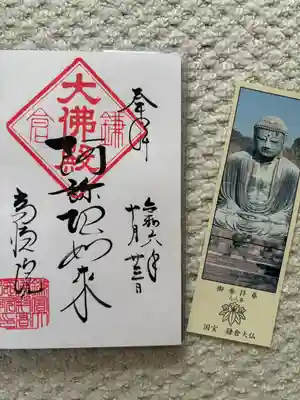 奉拝
令和六年
十月廿三日
鎌倉
大佛殿
阿弥陀如来
高徳院
御参拝券
国宝 鎌倉大仏